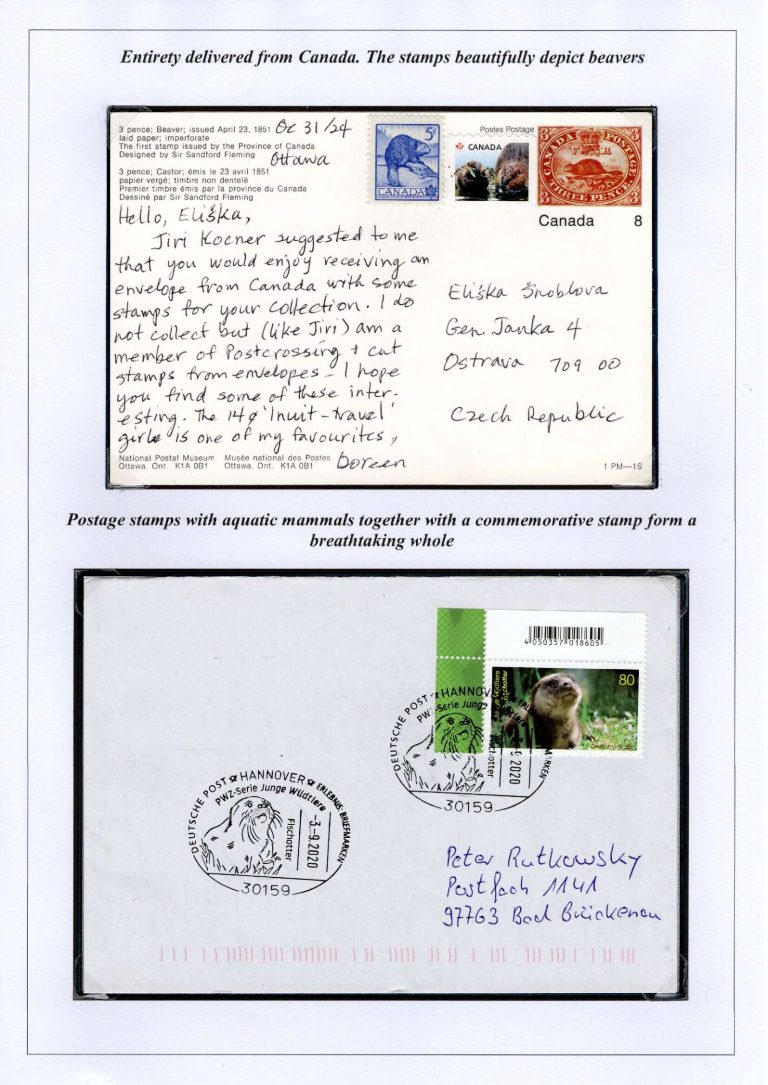 Entirety delivered from Canada. The stamps beautifully depict beavers
3 pence; Beaver; issued April 23, 1851
laid paper; imperforate
The first stamp issued by the Province of Canada
Designed by Sir Sandford Fleming
3 pence; Castor; émis le 23 avril 1851
papier vergé; timbre non dentelé
Premier timbre émis par la province du Canada
Dessiné par Sir Sandford Fleming
Oc 31/24
Ottawa
Hello, Eliška,
Jiri Kocner suggested to me
that you would enjoy receiving an
envelope from Canada with some
stamps for your collection. I do
not collect but (like Jiri) am a
member of Postcrossing + cut
stamps from envelopes – I hope
you find some of these inter-
esting. The 14¢ 'Inuit-travel'
girls is one of my favourites,
Doreen
National Postal Museum
Ottawa, Ont. K1A 0B1
Musée national des Postes
Ottawa, Ont. K1A 0B1
5¢
CANADA
Postes Postage
P
CANADA
CANADA POSTAGE
THREE PENCE
3
3
3
3
Canada 8
Eliška Šnoblova
Gen. Janka 4
Ostrava 709 00
Czech Republic
1 PM—1S
Postage stamps with aquatic mammals together with a commemorative stamp form a
breathtaking whole
4 050357 018605
Junge Wildtiere
Fischotter
80
DEUTSCHE POST HANNOVER ERLEBNIS: BRIEFMARKEN
PWZ-Serie Junge Wildtiere
Fischotter
-3.-9.2020
30159
DEUTSCHE POST HANNOVER ERLEBNIS: BRIEFMARKEN
PWZ-Serie Junge Wildtiere
Fischotter
-9.2020
30159
Peter Rutkowsky
Postfach 1141
97763 Bad Brückenau